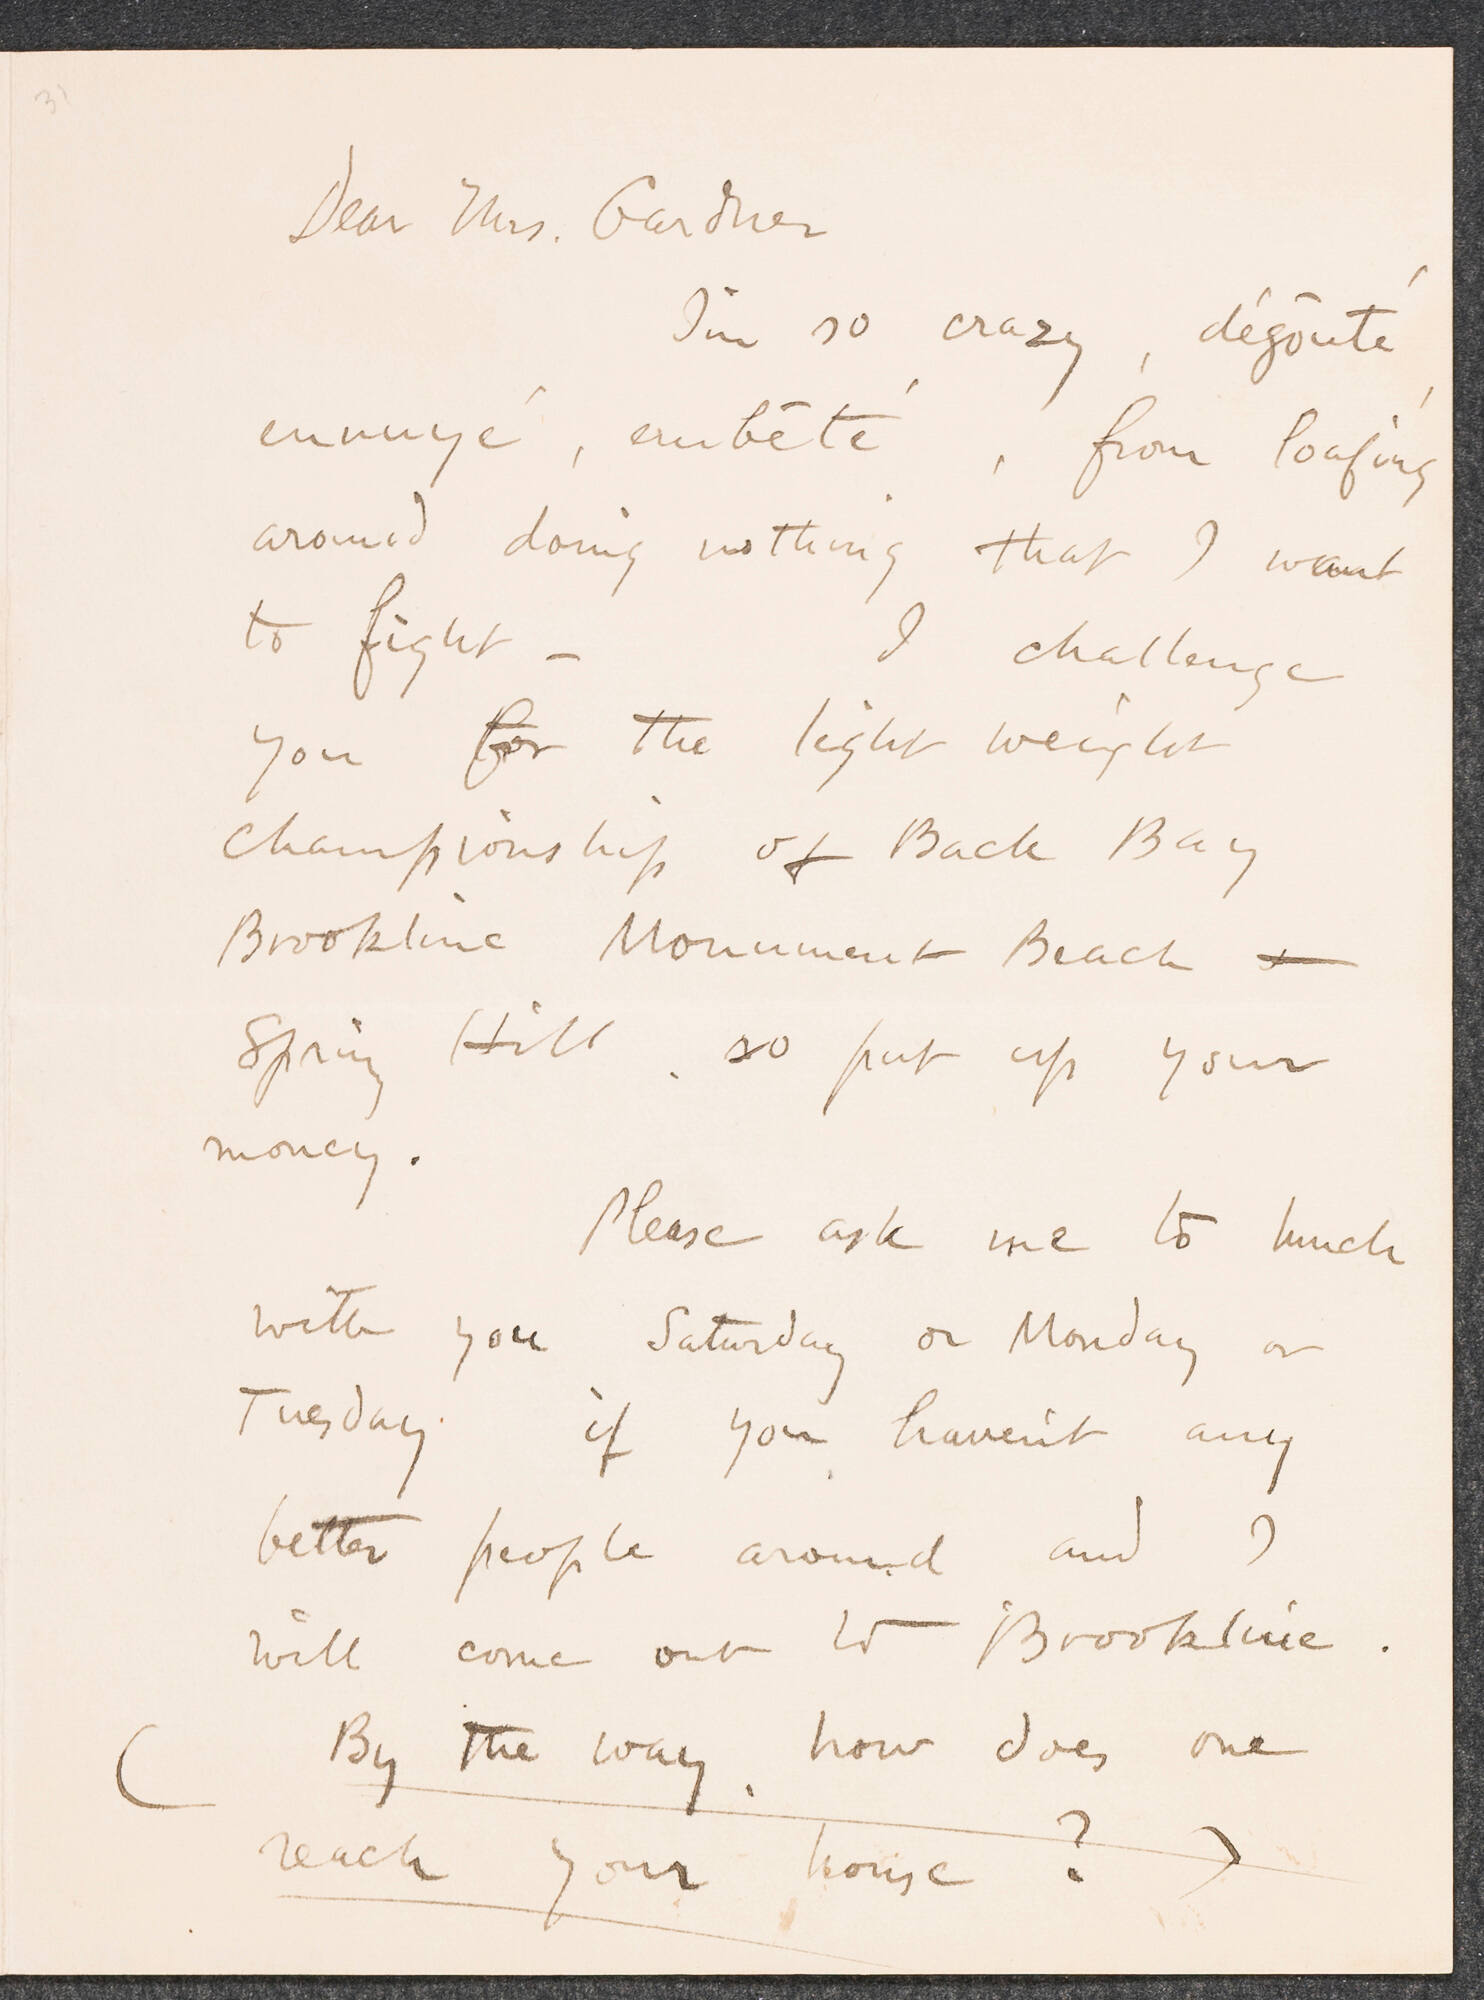 31
Dear Mrs. Gardner
I'm so crazy, dégôuté,
ennuyé, embêté, from loafing
around doing nothing that I want
to fight - I challenge
you for the light weight
championship of Back Bay
Brookline Monument Beach +
Spring Hill. so put up your
money.
Please ask me to lunch
with you Saturday or Monday or
Tuesday if you haven't any
better people around and I
will come out to Brookline.
( By the way, how does one
reach your house? )